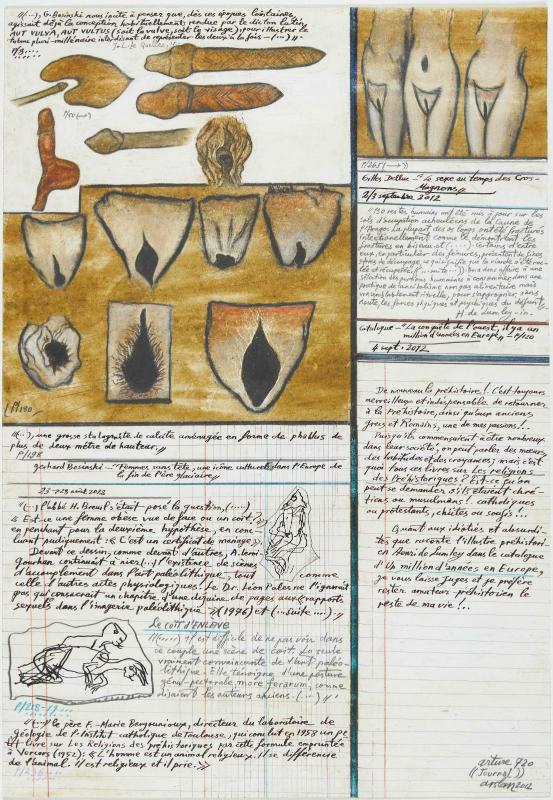 ((...), G. Bosinski nous incite à penser que, dès ces époques lointaines,
agissait déjà la conception habituellement rendue par le dicton latin,
AUT VULVA, AUT VULTUS (soit la vulve, soit le visage), pour illustrer le
tabou pluri-millénaire interdisant de représenter les deux à la fois -(...)
P/3...
P/50 (→)
P/180
((...), une grosse stalagmite de calcite aménagée en forme de phallus de
plus de deux mètre de hauteur.
P/198
gerhard Bosinski - "Femmes sans tête, une icône culturelle dans l'Europe de
la fin de l'ère glaciaire"
25-28 août 2012
(...) l'abbé H. Breuil s'était posé la question, (....)
Est-ce une femme obèse vue de face ou un coït?
en penchant pour la deuxième hypothèse, en con-
cluant pudiquement: C'est un certificat de mariage.
Devant ce dessin, comme devant d'autres, A. Leroi-
Gourhan continuait à nier (..) l'existence de scènes
d'accouplement dans l'art paléolithique, tout comme
celle d'autres actes physiologiques! Le Dr. Léon Pales ne l'ignorait
pas qui consacrait un chapitre d'une dizaine de pages aux rapports
sexuels dans l'imagerie paléolithique (1976) et (...suite....)
Le coït d'ENLÈNE
((...) il est difficile de ne pas voir dans
ce couple une scène de coït. La seule
vraiment convaincante de l'art paléo-
lithique. Elle témoigne d'une posture
génu-pectorale, more ferarum, comme
disaient les auteurs anciens. (...)
P/218-19...
((...) le père F.-Marie Bergounioux, directeur du laboratoire de
géologie de l'Institut catholique de Toulouse, qui conclut en 1958 un pe
tit livre sur Les Religions des préhistoriques par cette formule empruntée
à Vercors (1952): L'homme est un animal religieux. Il se différencie
de l'animal. Il est religieux et il prie.
P/236...
P/265 (→)
Gilles Delluc - "Le sexe au temps des Cros-
Magnons"
2/3 septembre 2012
"130 restes humains ont été mis à jour sur les
sols d'occupation acheuléens de la Caune de
l'Arago. La plupart des os longs ont été fracturés
intentionellement comme le démontrent les
fractures en biseau et (....) Certains d'entre
eux, en particulier des fémurs, présentent de fines
stries de découpage, ce qui signifie que la viande a été rac-
lée et récupérée. (...suite...)) On a donc affaire à une
sélection des portions humaines à consommer dans une
pratique de cannibalisme non pas alimentaire mais
vraisemblablement rituelle, pour s'approprier, sans
doute, les forces physiques et psychiques du défunt,
H. de Lumley - in -
Catalogue - "La conquête de l'ouest, il y a un
million d'années en Europe" - P/120
4 sept. 2012
De nouveau la préhistoire!. C'est toujours
merveilleux et indispensable de retourner
à la Préhistoire, ainsi qu'aux anciens
grecs et Romains, une de mes passions!.
Puisqu'ils commençaient à être nombreux
dans leur société, on peut parler des mœurs
(des habitudes et des croyances) mais c'est
quoi tous ces livres sur Les religions
des Préhistoriques? Est-ce qu'on
peut se demander s'ils étaient chré-
tiens ou musulmans!. catholiques
ou protestants, chiites ou soufis!..
Quant aux idioties et absurdi-
tés que raconte l'illustre préhistori-
en Henri de Lumley dans le catalogue
d'un million d'années en Europe,
je vous laisse Juger et je préfère
rester amateur préhistorien le
reste de ma vie!..
920
((Journal))
2012